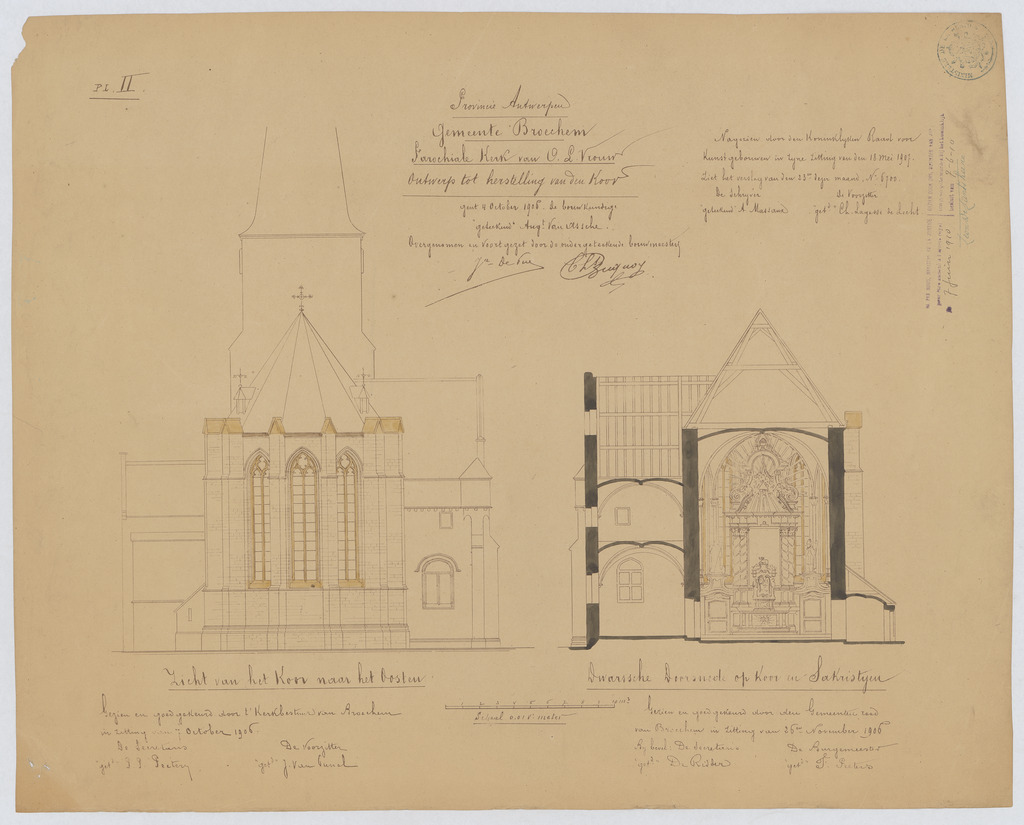 Pl. II.
Provincie Antwerpen
Gemeente Broechem
Parochiale Kerk van O. L. Vrouw
Ontwerp tot herstelling van den Koor
Gent 4 October 1906. De bouwkundige
"geteekend" Augt Van Assche.
Overgenomen en voortgezet door de ondergeteekende bouwmeesters
Nagezien door den Koninklyken Raad voor
Kunstgebouwen in zyne zitting van den 18 Mei 1907.
Ziet het verslag van den 23en dezer maand, No 6700.
De Schryver De Voorzitter
"geteekend" A. Massaux "get" Ch. Lagasse de Locht
7 juin 1910
Zicht van het Koor naar het Oosten
Dwarssche Doorsnede op Koor en Sakristyen
Schaal 0.01 5 meter
Gezien en goedgekeurd door 't Kerkbestuur van Broechem
in zitting van 7 October 1906.
De Secretaris De Voorzitter
"get" "get" J. Van
Gezien en goedgekeurd door den Gemeenteraad
van Broechem in zitting van 26en November 1906
By bevel: De Secretaris De Burgemeester
"get" De Ridder "get" F. Peeters